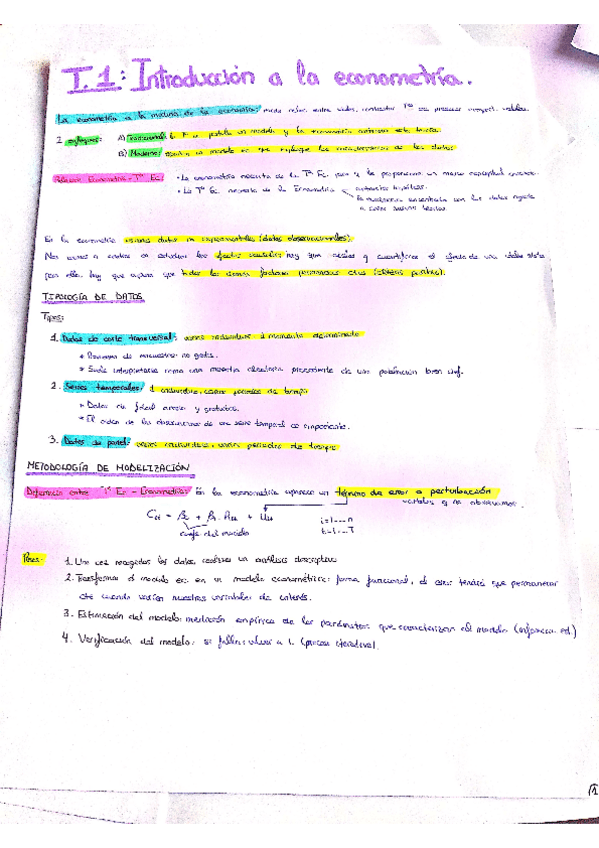 T.1: Introducción a la econometría.
La econometría es la medida de la economía: medir relac. entre vbles, contrastar Tª ec, predecir
2 enfoques: A) Tradicional: la Tª ec postula un modelo y la econometría contrasta esta teoría.
B) Moderno: un modelo ec que refleje las características de los datos
Relación Econometría - Tª Ec: • La econometría necesita de la Tª Ec. para q le proporcione un marco conceptual
• La Tª Ec. necesita de la Econometría contrastar hipótesis.
En la econometría usamos datos no experimentales (datos observacionales).
Nos vamos a centrar en estudiar los efectos causales: hay que aislar y cuantificar el efecto de una vble sobre
para ello, hay que asumir que todos los demás factores permanecen ctes (ceteris paribus).
TIPOLOGÍA DE DATOS
Tipos:
1. Datos de corte transversal: varios individuos, 1 momento determinado
• Provienen de encuestas: no gratis.
• Suele interpretarse como una muestra aleatoria procedente de una población bien def.
2. Series temporales: 1 individuo, varios periodos de tiempo
• Datos de fácil acceso y gratuitos.
• El orden de las observaciones de una serie temporal es importante.
3. Datos de panel: varios individuos, varios periodos de tiempo
METODOLOGÍA DE MODELIZACIÓN
Diferencia entre Tª Ec - Econometría: En la econometría aparece un término de error o perturbación
variables q no observamos
i=1...n
t=1...T
del modelo
Pasos: 1. Una vez recogidos los datos, realizar un análisis descriptivo
2. Transformar el modelo ec. en un modelo econométrico: forma funcional, el error tendrá que permanecer
cte cuando varíen nuestras variables de interés.
3. Estimación del modelo: medición empírica de los parámetros que caracterizan al modelo (inferencia est.)
4. Verificación del modelo: si falla: volver a 1. (proceso iterativo).
1